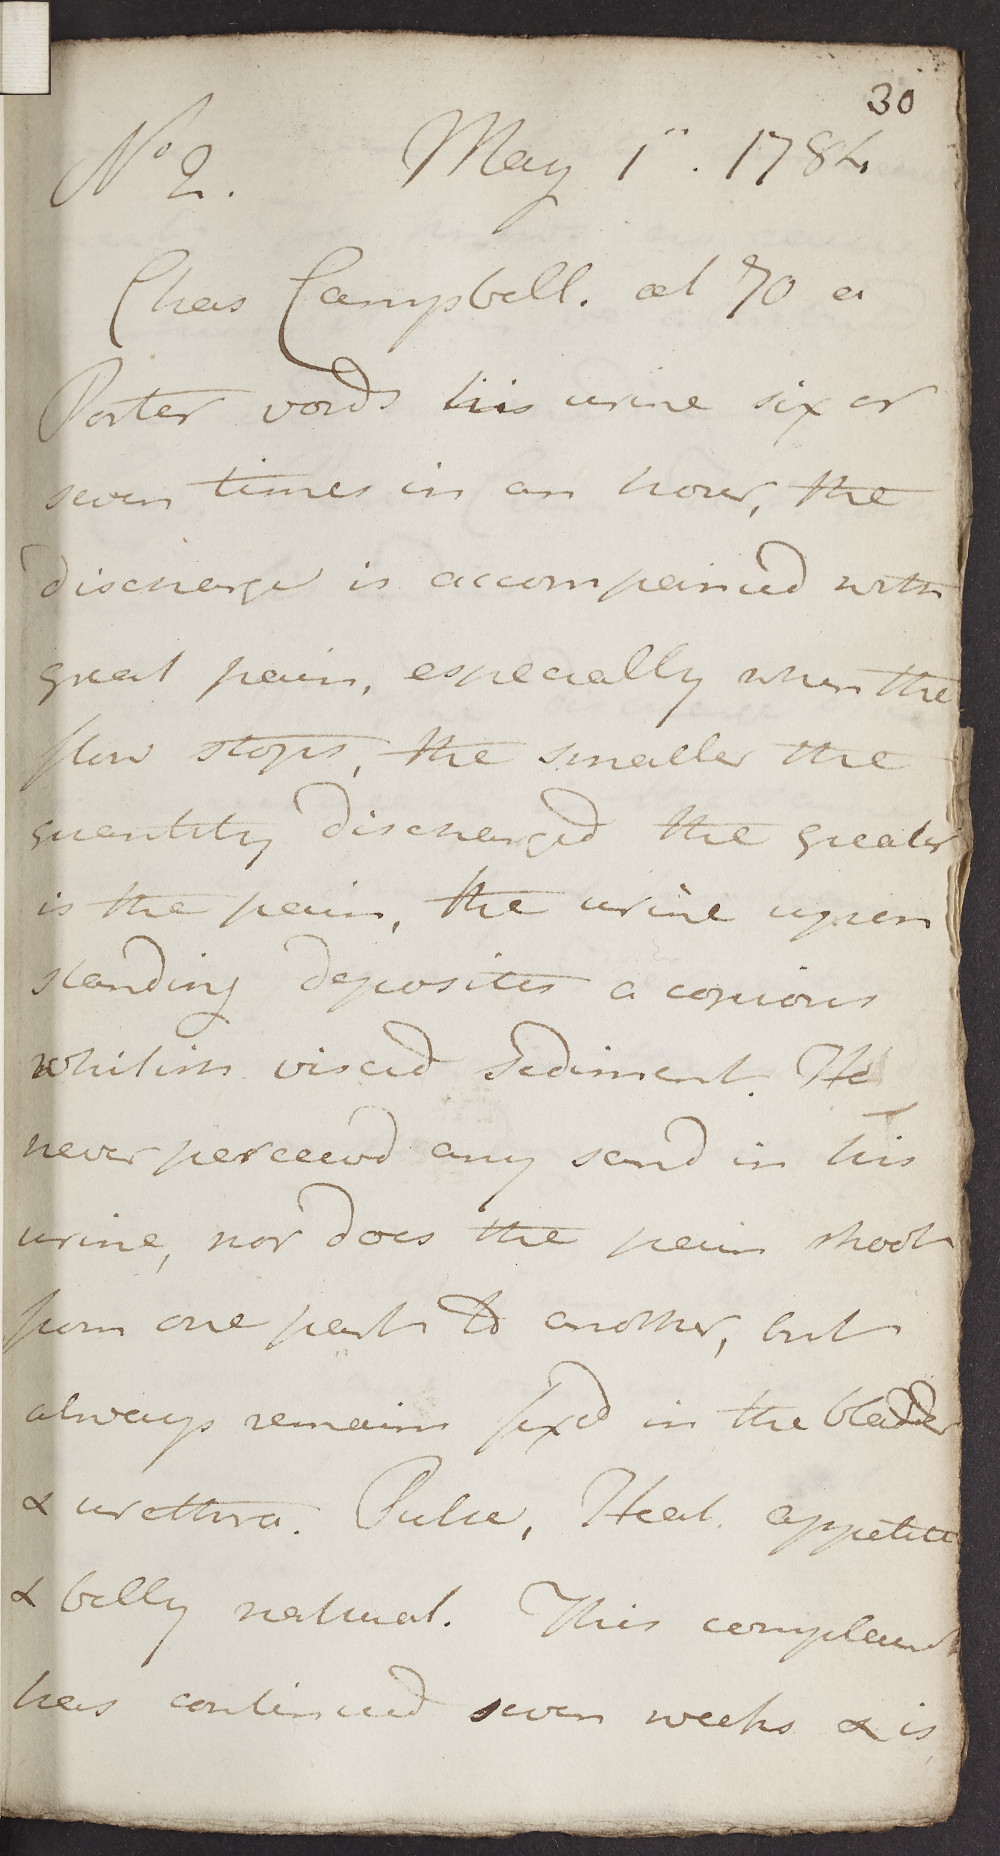 30
No 2. May 1st. 1784
Chas Campbell. æt 70 a
Porter voids his urine six or
seven times in an hour, the
discharge is accompanied with
great pain, especially when the
flow stops, the smaller the
quantity discharged the greater
is the pain, the urine upon
standing deposites a copious
whitish viscid Sediment. He
never perceived any sand in his
urine, nor does the pain shoot
from one part to another, but
always remains fixed in the bladder
& urethra. Pulse, Heat. appetite
& belly natural. This complaint
has continued seven weeks & is